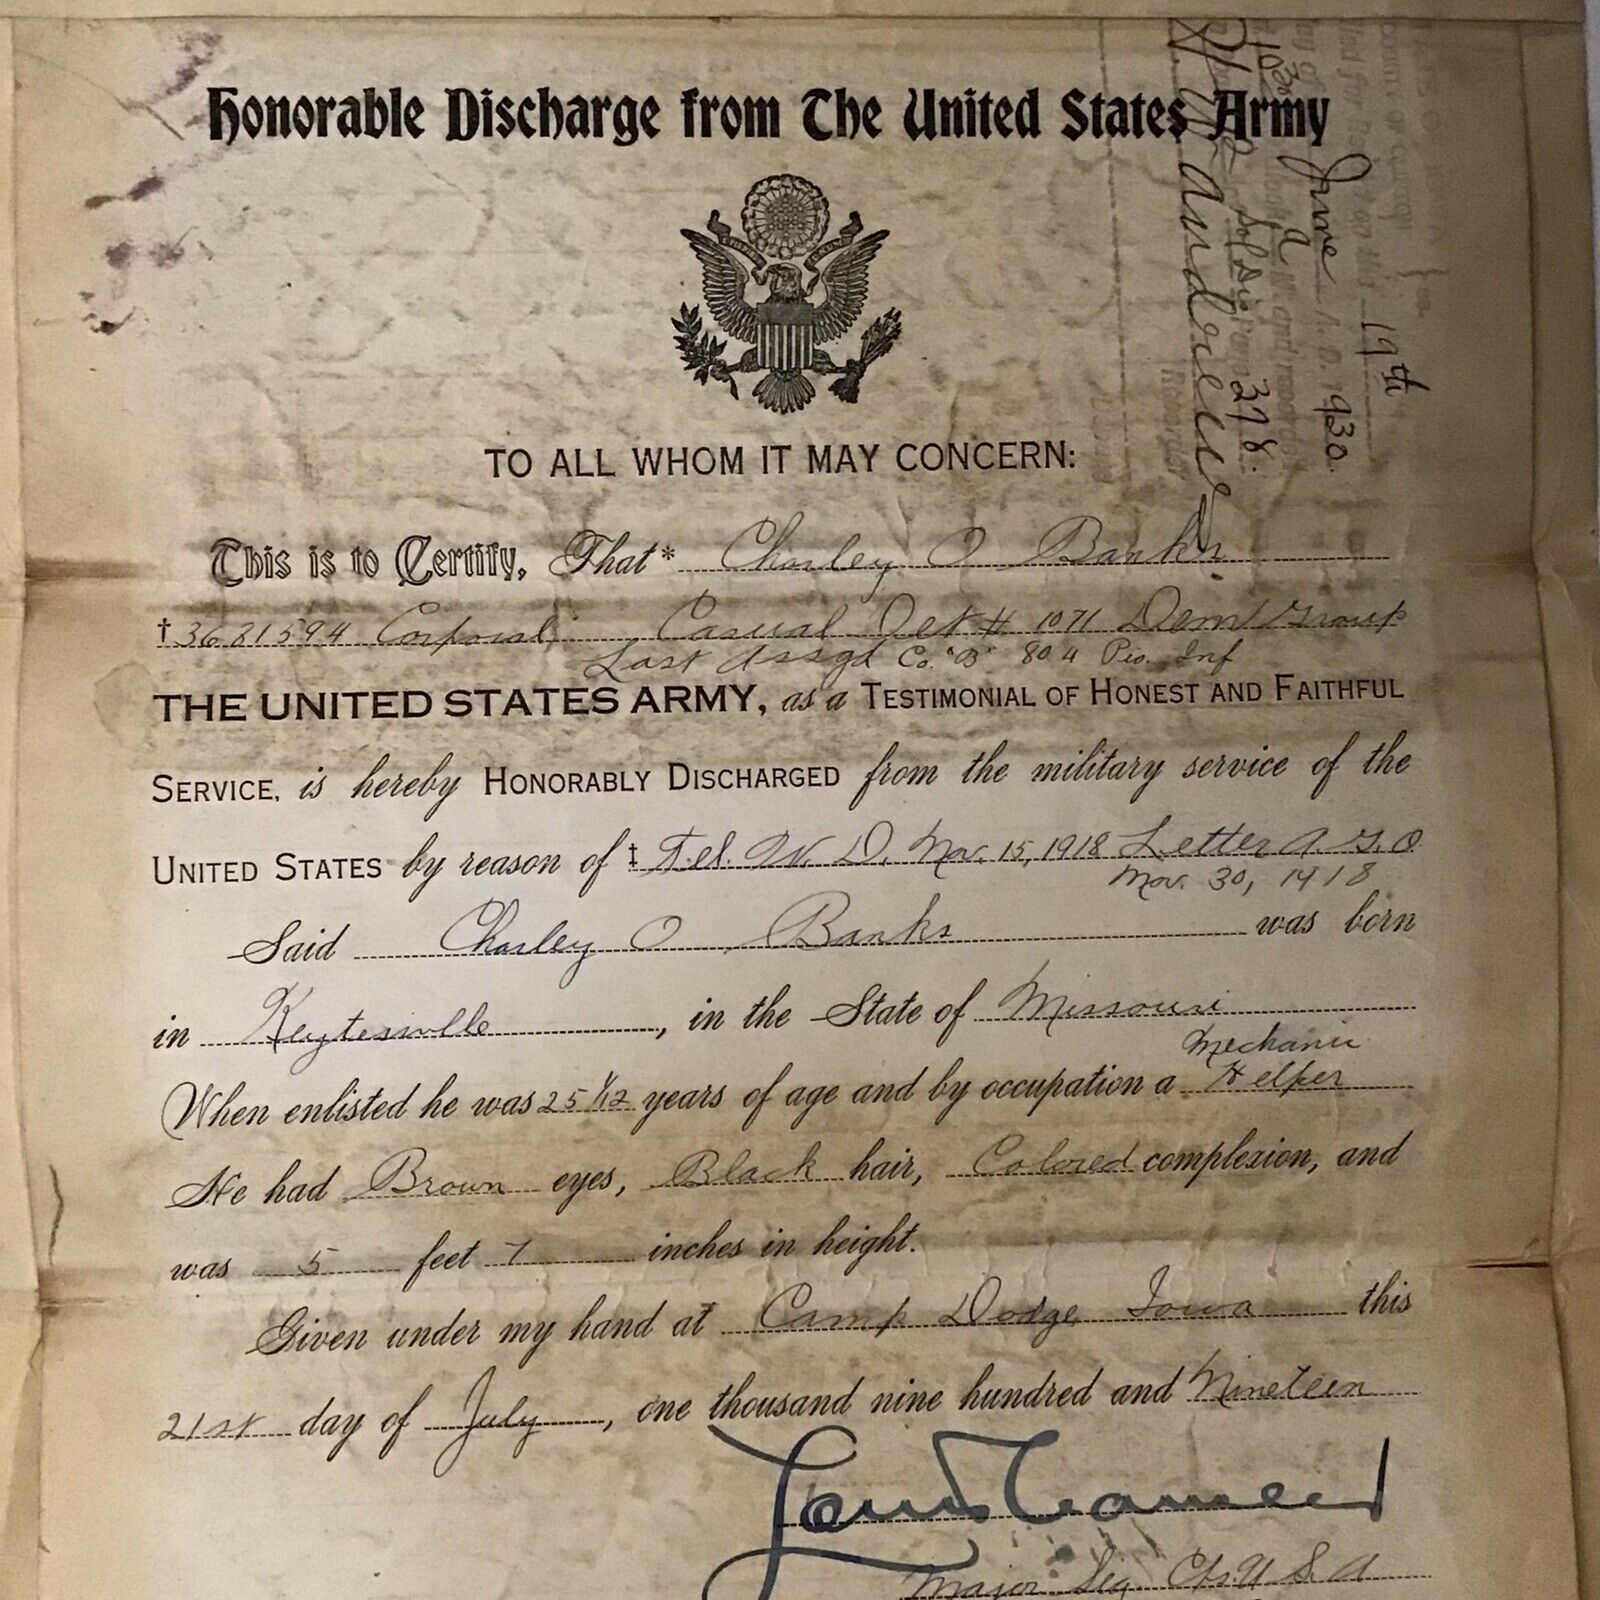 Honorable Discharge from The United States Army
TO ALL WHOM IT MAY CONCERN:
This is to Certify, That* Charley O Banks
†3681594 Corporal, Casual Det # 1071 Deml Group
Last Assgd Co. "B" 804 Pio. Inf
THE UNITED STATES ARMY, as a TESTIMONIAL OF HONEST AND FAITHFUL
SERVICE, is hereby HONORABLY DISCHARGED from the military service of the
UNITED STATES by reason of ‡ Tel. W. D. Nov. 15, 1918 Letter A. G. O
Nov. 30, 1918
Said Charley O Banks was born
in Keytesville, in the State of Missouri
Mechanic
When enlisted he was 25 1/12 years of age and by occupation a Helper
He had Brown eyes, Black hair, Colored complexion, and
was 5 feet 7 inches in height.
Given under my hand at Camp Dodge, Iowa this
21st day of July, one thousand nine hundred and Nineteen
Major U S A
19th
June A. D. 1930.
a
278.